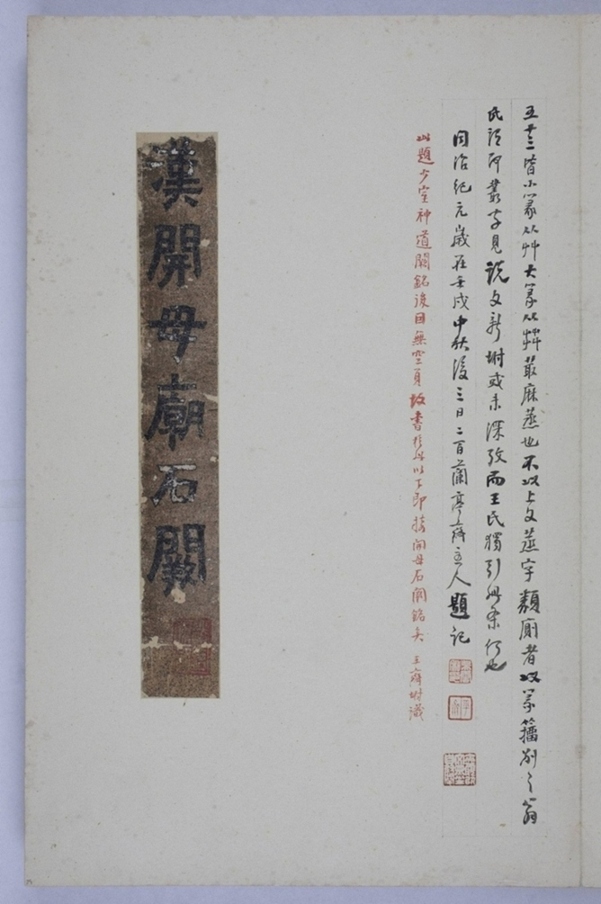 五十三皆小篆从艸大篆从茻菆麻蒸也不以上文蒸字類廁者以篆籀别之翁
氏即叢字見説文新坿或未深攷而王氏獨引何也
同治紀元歲在壬戌中伏後三日二百蘭亭齋主人題記
此題少室神道闕銘後因無空頁故書於此以下即接開母石闕銘矣 平齋坿識
漢開母廟石闕